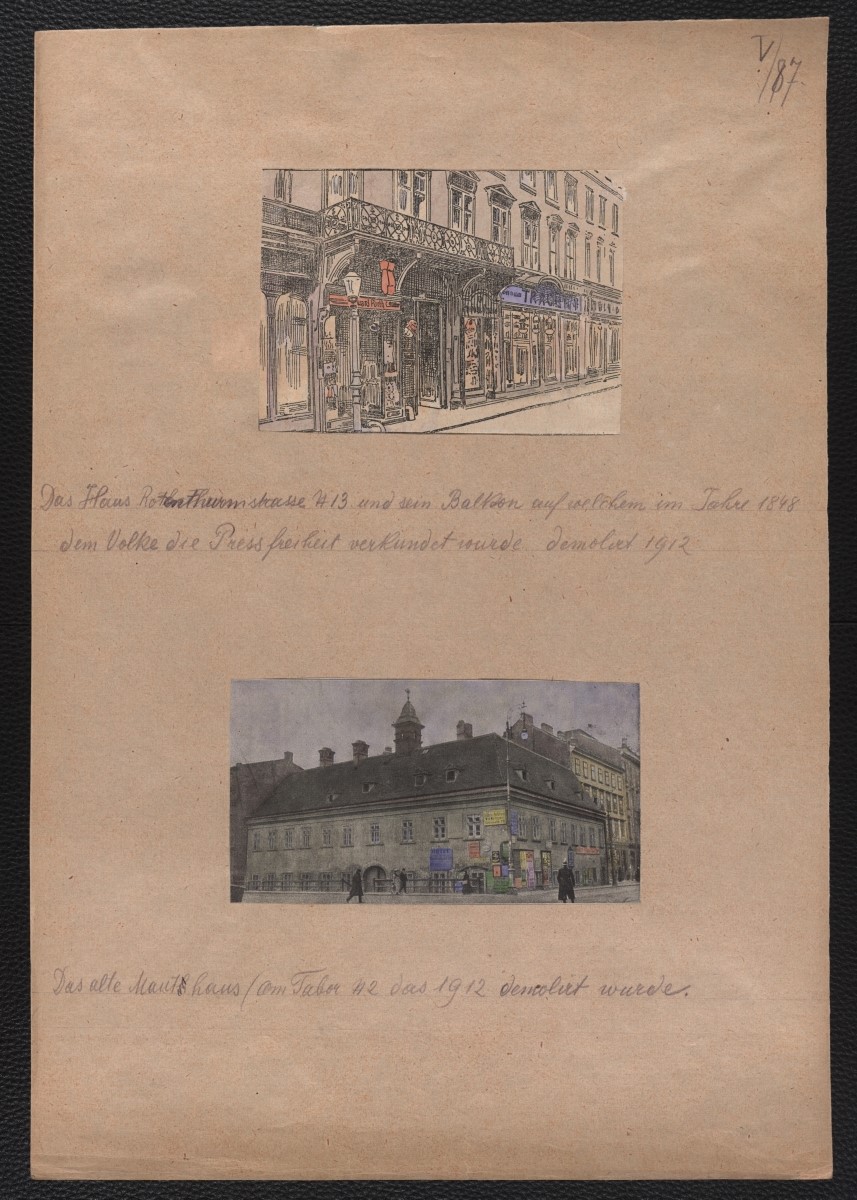 V/87
TRACHTEN
Das Haus Rothenthurmstrasse #13 und sein Balkon auf welchem im Jahre 1848
dem Volke die Pressfreiheit verkündet wurde demolirt 1912
Das alte Mauthhaus (am Tabor #2 das 1912 demolirt wurde.